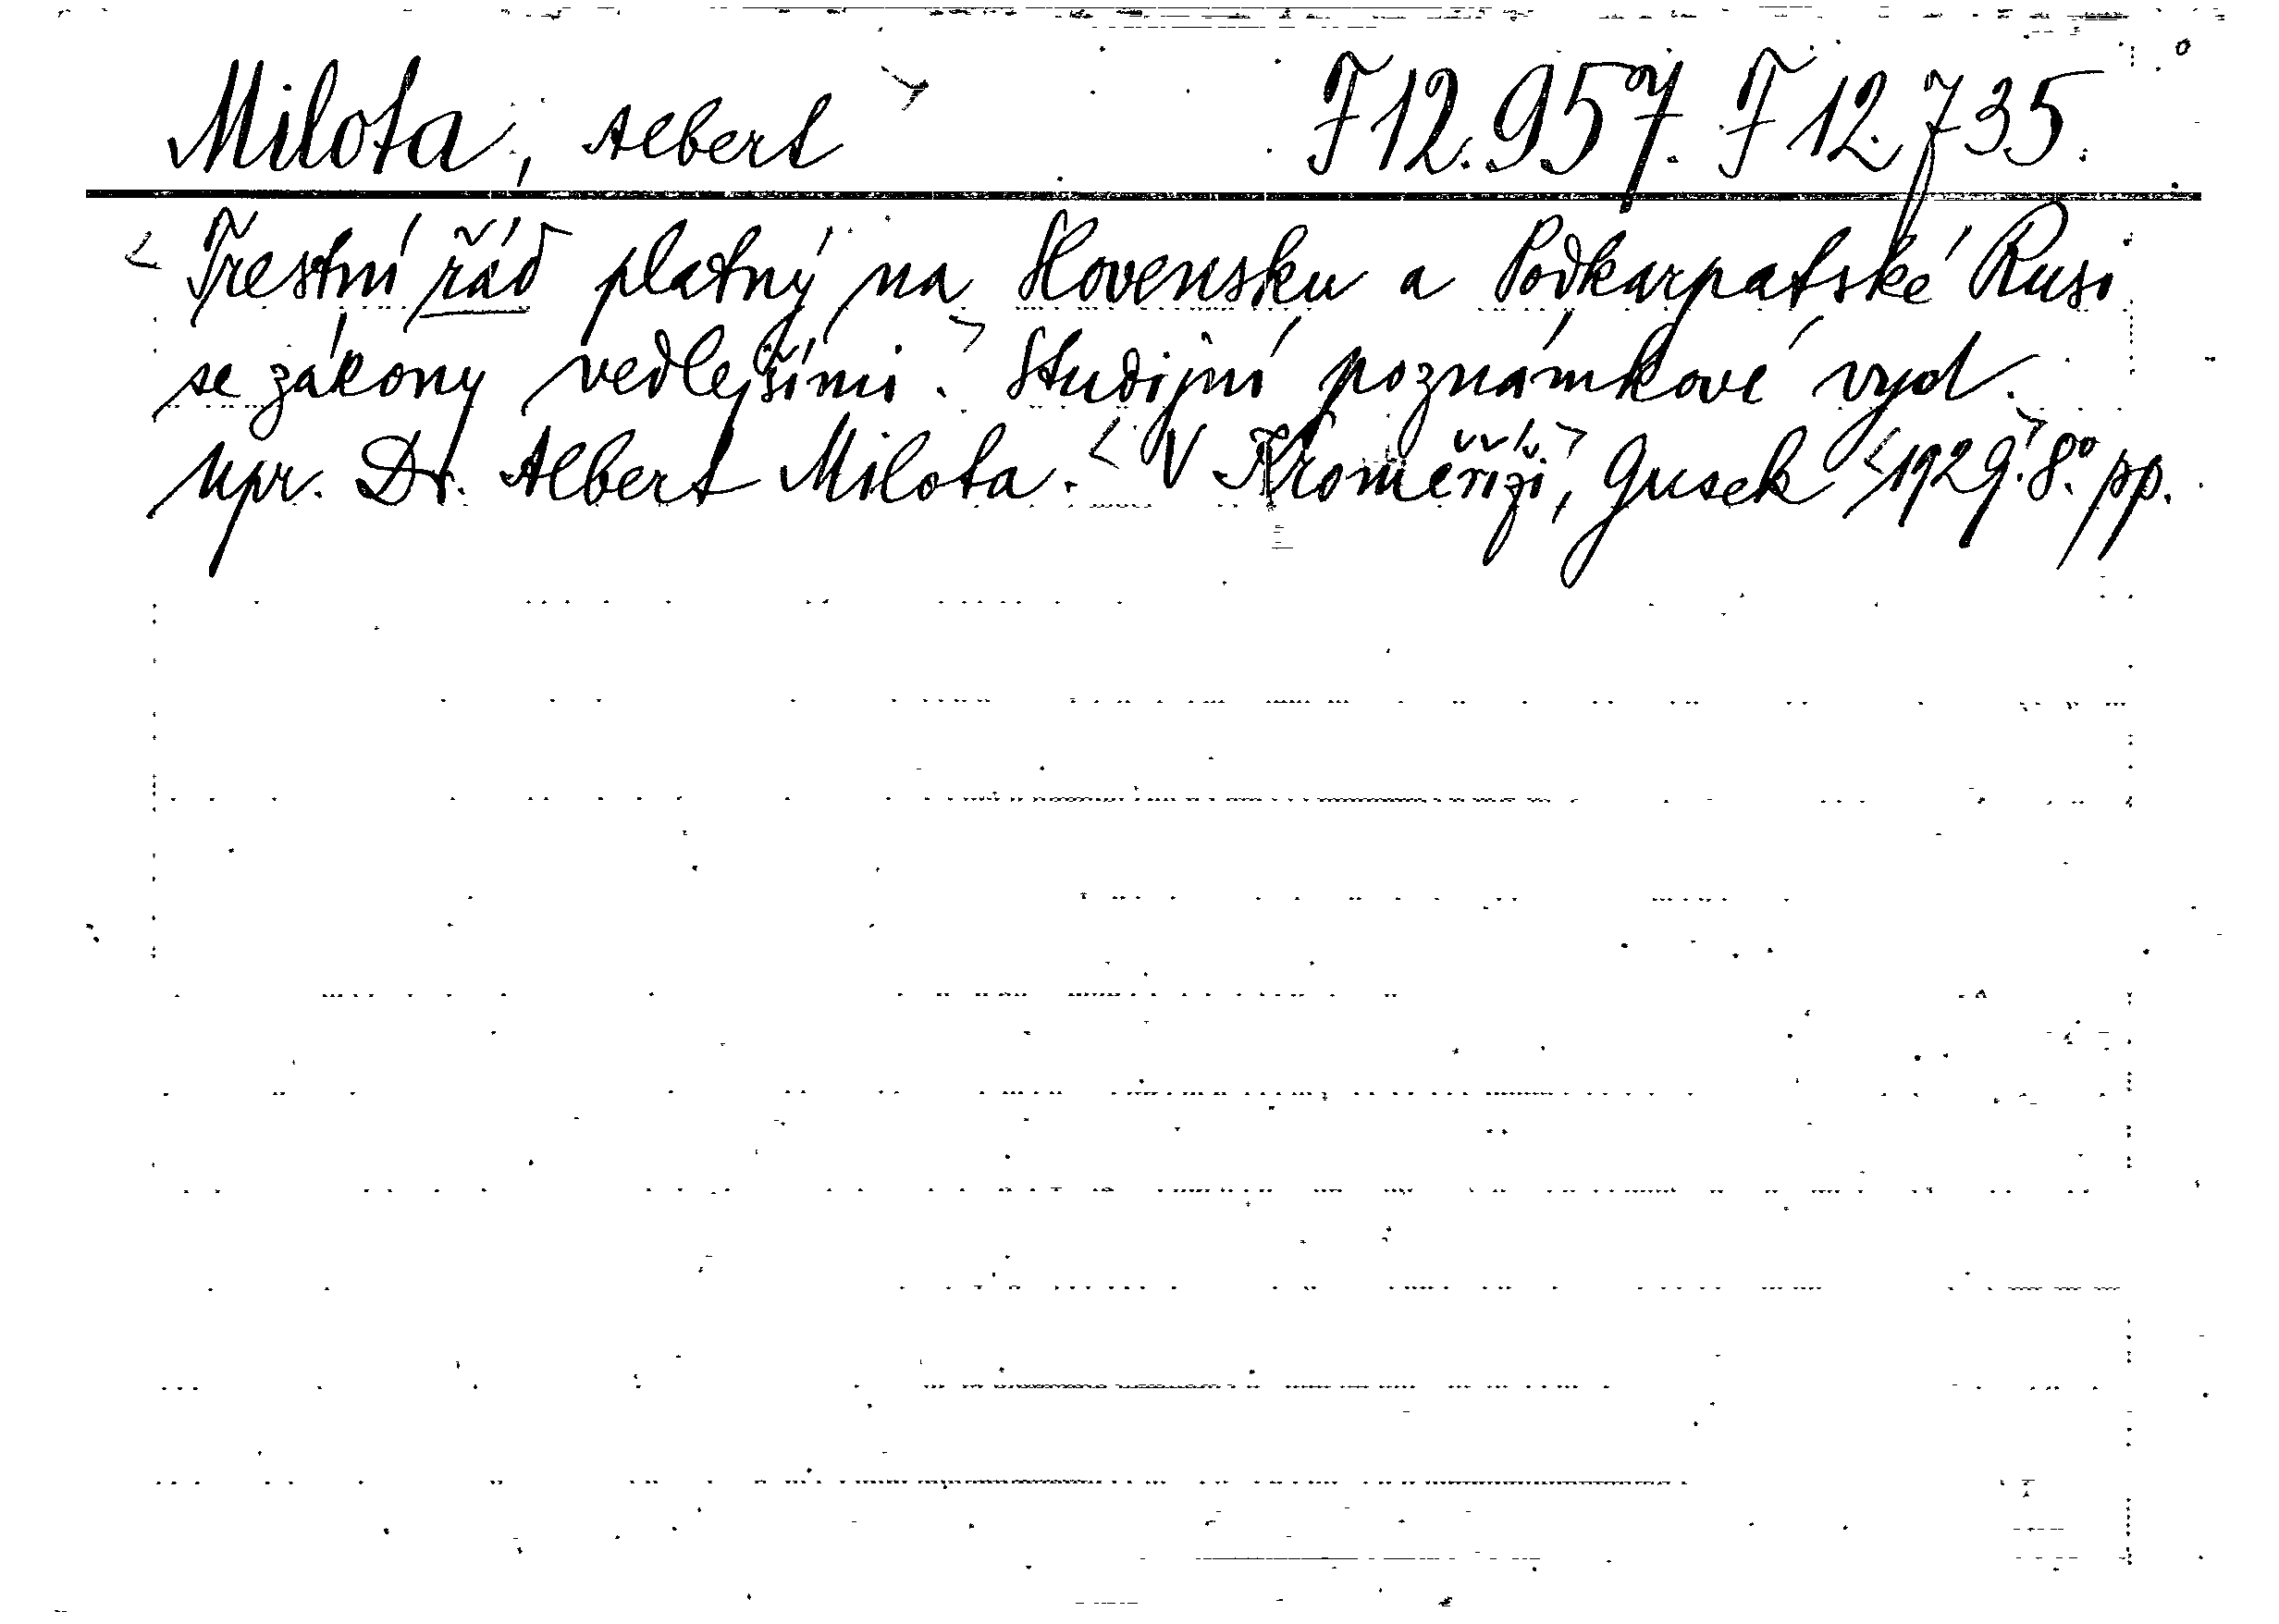 Milota, Albert F 12.957. F 12.735.
Trestní řád platný na Slovensku a Podkarpatské Rusi
se zákony vedlejšími. Studijní poznámkové vyd.
Upr. Dr. Albert Milota. V Kroměříži, Gusek 1929. 8°. pp.